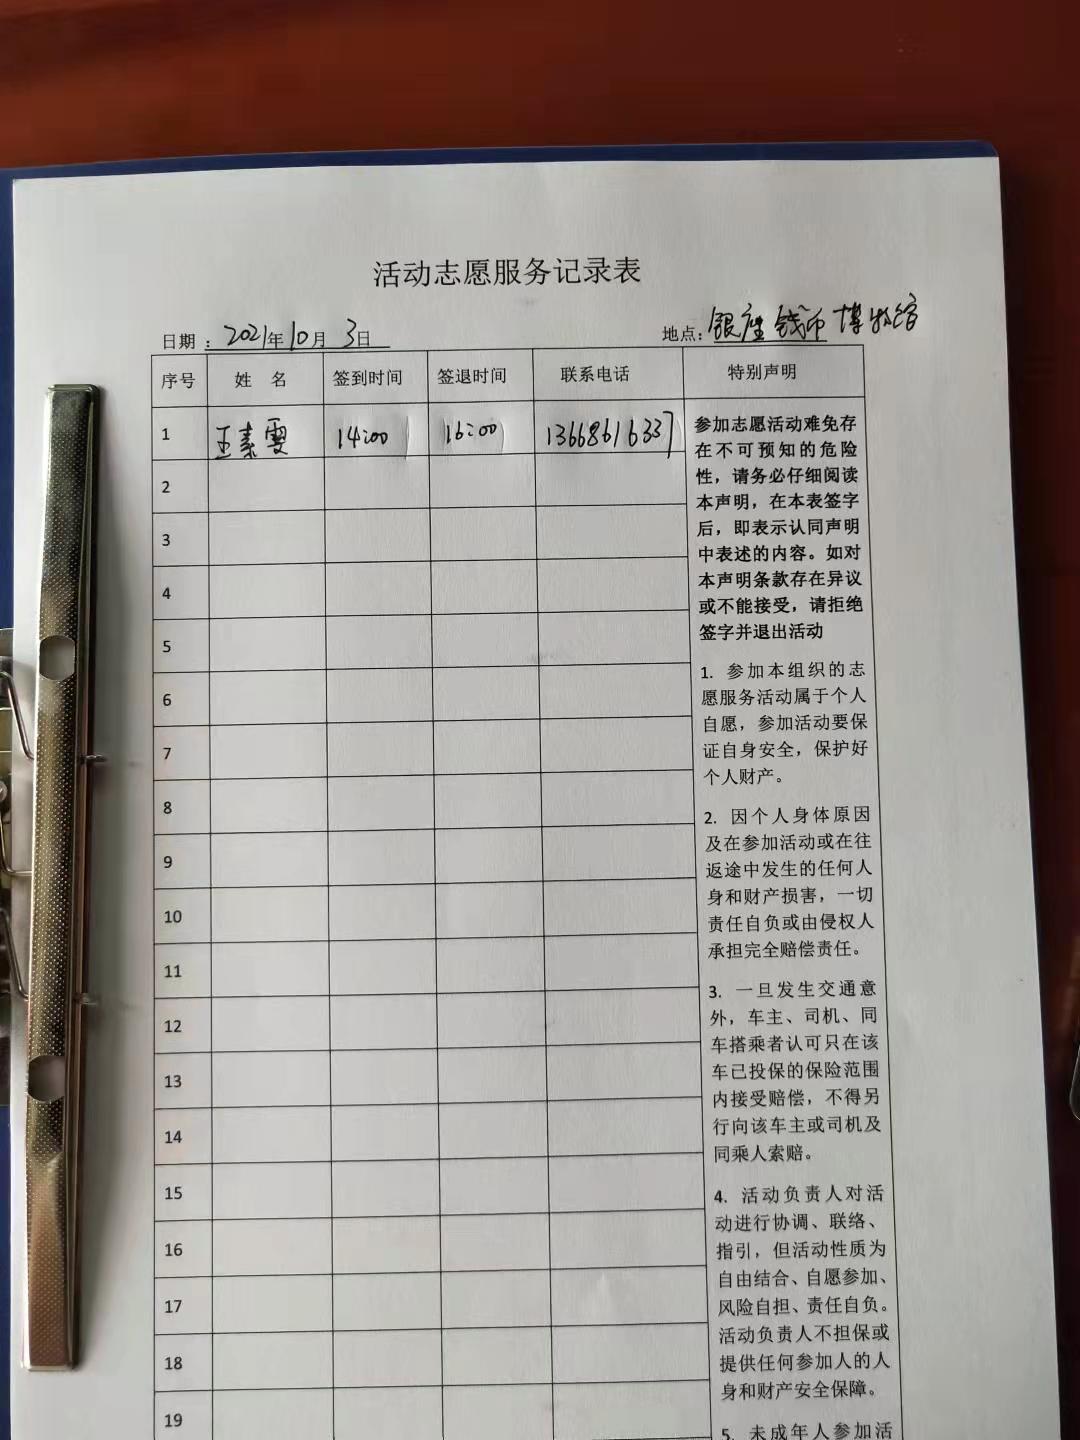 活动志愿服务记录表
日期：2021年10月3日
地点：银座钱币博物馆
序号 姓 名 签到时间 签退时间 联系电话 特别声明
1 王素雯 14:00 16:00 13668616337
2
3
4
5
6
7
8
9
10
11
12
13
14
15
16
17
18
19
参加志愿活动难免存
在不可预知的危险
性，请务必仔细阅读
本声明，在本表签字
后，即表示认同声明
中表述的内容。如对
本声明条款存在异议
或不能接受，请拒绝
签字并退出活动
1. 参加本组织的志
愿服务活动属于个人
自愿，参加活动要保
证自身安全，保护好
个人财产。
2. 因个人身体原因
及在参加活动或在往
返途中发生的任何人
身和财产损害，一切
责任自负或由侵权人
承担完全赔偿责任。
3. 一旦发生交通意
外，车主、司机、同
车搭乘者认可只在该
车已投保的保险范围
内接受赔偿，不得另
行向该车主或司机及
同乘人索赔。
4. 活动负责人对活
动进行协调、联络、
指引，但活动性质为
自由结合、自愿参加、
风险自担、责任自负。
活动负责人不担保或
提供任何参加人的人
身和财产安全保障。
5. 未成年人参加活